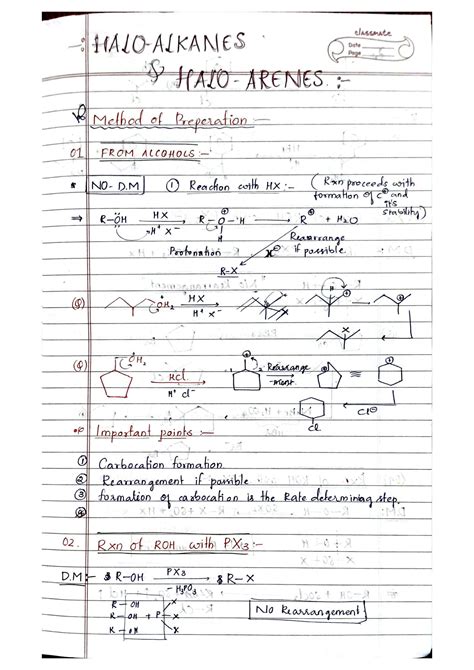 classmate
Date
Page
-: HALO-ALKANES
& HALO-ARENES :-
Method of Preperation :-
01 FROM ALCOHOLS :-
* NO-D.M ① Reaction with HX :- (Rxn proceeds with formation of C⊕ and it's stability)
⇒ R-ÖH HX H⁺ X⁻ R-O⊕-H H R⊕ + H₂O
Protonation X⊖ Rearrange if possible
R-X
(Q) OH₂ HX H⁺ X⁻ H ⊕ ⊕
X
(Q) OH₂ HCl H⁺ Cl⁻ ⊕ 2 Rearrange -ment ⊕ ≡ ⊕
Cl Cl⊖
Important points :-
① Carbocation formation
② Rearrangement if possible
③ formation of carbocation is the Rate determining step.
④
02. Rxn of ROH with PX₃ :-
D.M :- 3 R-OH PX₃ - H₃PO₃ 3 R-X
R - OH X
R - OH + P - X
R - OH X
No Rearrangement